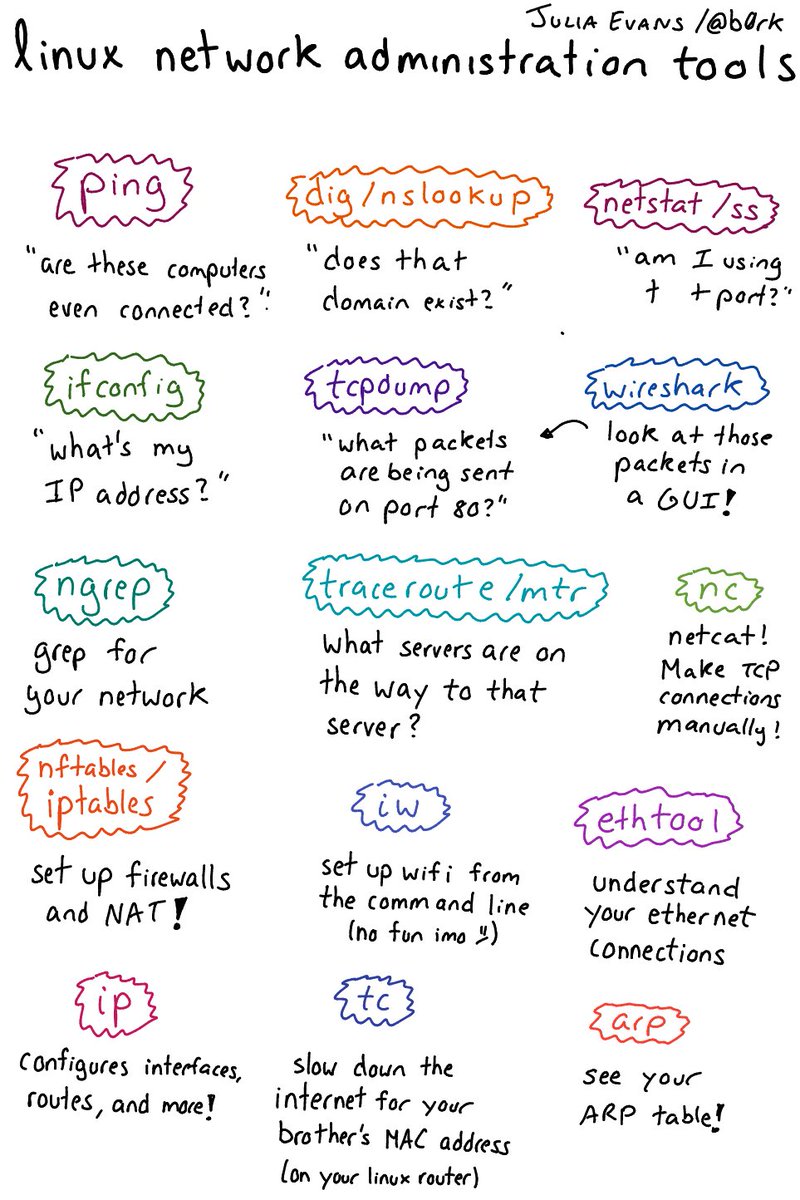 JULIA EVANS /@b0rk
linux network administration tools
ping
"are these computers
even connected?"
dig/nslookup
"does that
domain exist?"
netstat/ss
"am I using
t t port?"
ifconfig
"what's my
IP address?"
tcpdump
"what packets
are being sent
on port 80?"
wireshark
look at those
packets in
a GUI!
ngrep
grep for
your network
traceroute/mtr
what servers are on
the way to that
server?
nc
netcat!
Make TCP
connections
manually!
nftables/
iptables
set up firewalls
and NAT!
iw
set up wifi from
the command line
(no fun imo
ethtool
understand
your ethernet
connections
ip
configures interfaces,
routes, and more!
tc
slow down the
internet for your
brother's MAC address
(on your linux router)
arp
see your
ARP table!